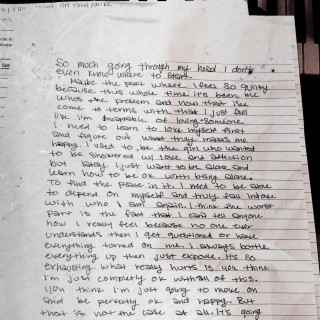 So much going through my head I don't
even know where to start.
Maybe the part where I feel so guilty
because this whole time it's been me
who's the problem and now that I've
come to terms with that I just feel
like I'm incapable of loving someone.
I need to learn to love myself first
and figure out what truly makes me
happy. I used to be the girl who wanted
to be showered w/ love and affection
but lately I just want to be alone and
learn how to be ok with being alone.
To find the peace in it. I need to be able
to depend on myself and truly fall in love
with who I am again. I think the worst
part is the fact that I can't tell anyone
how I really feel because no one ever
understands then I get questioned or have
everything turned on me. I always bottle
everything up then just explode. It's so
exhausting. What really hurts is you think
I'm just completely ok with all of this.
You think I'm just going to move on
and be perfectly ok and happy. But
that is not the case at all. It's going